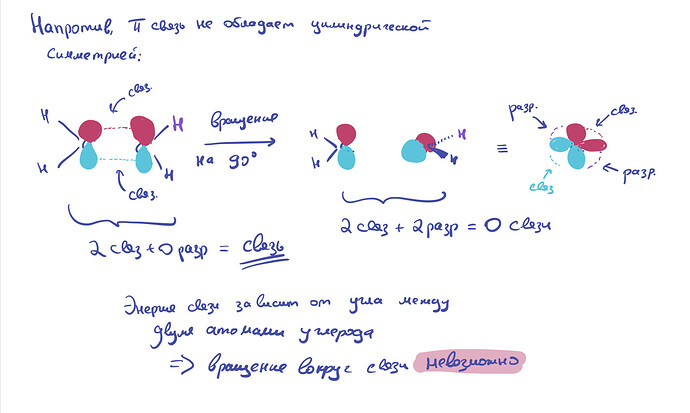 Напротив, π связь не обладает цилиндрической
симметрией:
связ.
H
H
H
H
связ.
вращение
на 90°
H
H
H
H
≡
разр.
связ.
связ
разр.
2 связ + 0 разр = связь
2 связ + 2 разр = 0 связи
Энергия связи зависит от угла между
двумя атомами углерода
=> вращение вокруг связи невозможно